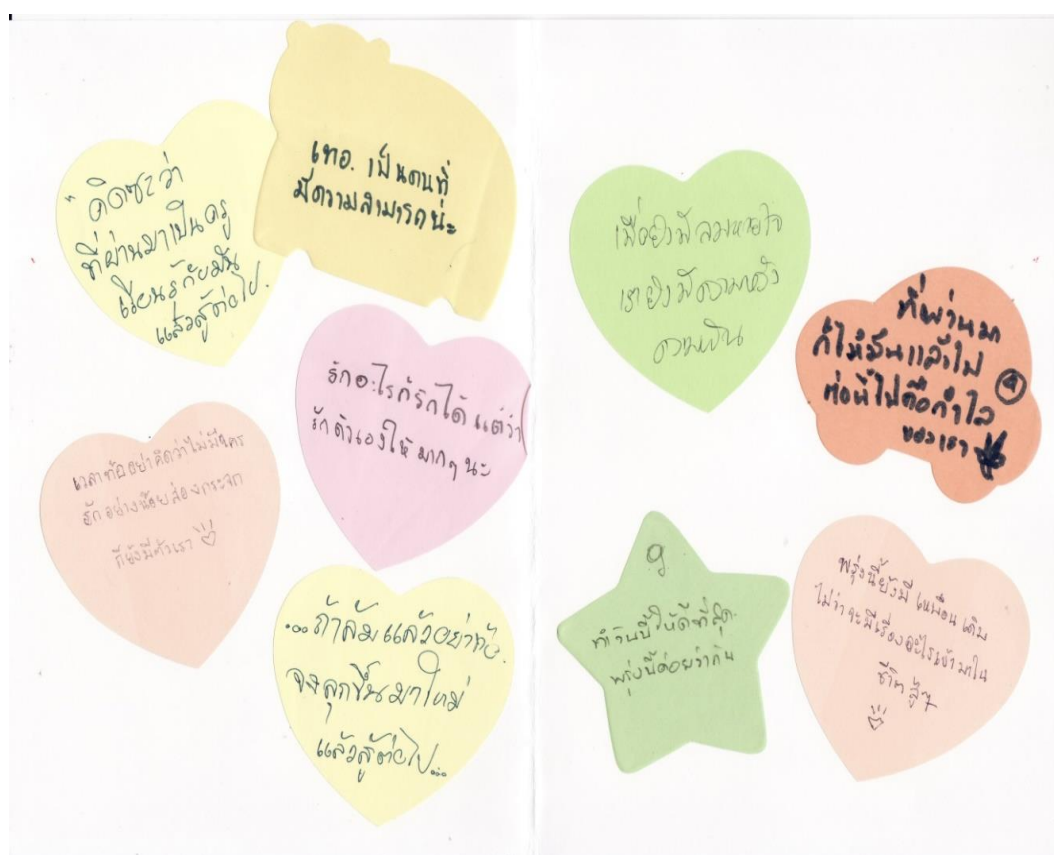 "คิดซะว่า
ที่ผ่านมาเป็นครู
เรียนรู้กับมัน
แล้วสู้ต่อไป.
เทอ. เป็นคนที่
มีความสามารถน่ะ
รักอะไรก็รักได้ แต่ว่า
รักตัวเองให้มากๆ นะ
เวลาท้ออย่าคิดว่าไม่มีใคร
รักอย่างน้อยส่องกระจก
ก็ยังมีตัวเรา
...ถ้าล้มแล้วอย่าท้อ.
จงลุกขึ้นมาใหม่
แล้วสู้ต่อไป...
เมื่อยังมีลมหายใจ
เรายังมีความหวัง
ความฝัน
ที่ผ่านมา
ก็ให้มันแล้วไป
ต่อนี้ไปคือกำไล
ของเรา
ทำวันนี้ให้ดีที่สุด.
พรุ่งนี้ค่อยว่ากัน
พรุ่งนี้ยังมีเหมือนเดิม
ไม่ว่าจะมีเรื่องอะไรเข้ามาใน
ชีวิต สู้ๆ